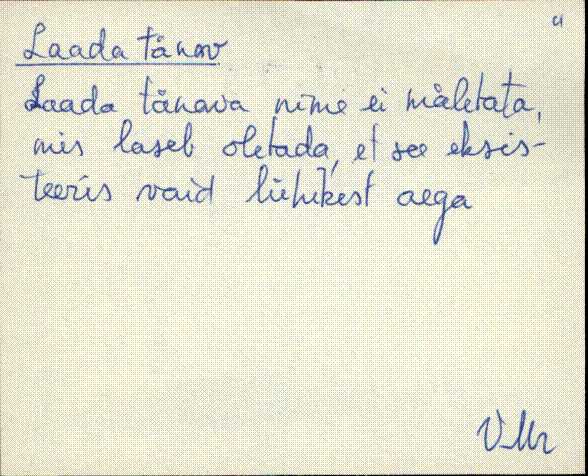 Laada tänav
Laada tänava nime ei mäletata,
mis laseb oletada, et see eksis-
teeris vaid lühikest aega